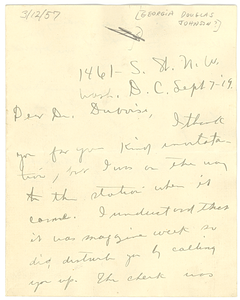 3/12/57
[GEORGIA DOUGLAS
JOHNSON?]
1461 - S. St. N. W.
Wash. D. C. Sept 7-19
Dear Dr. Dubois,
I thank
you for your kind invitation
tion, but I was on the way
to the station when it
came. I understood that
it was magazine week so
did disturb you by calling
you up. The check was